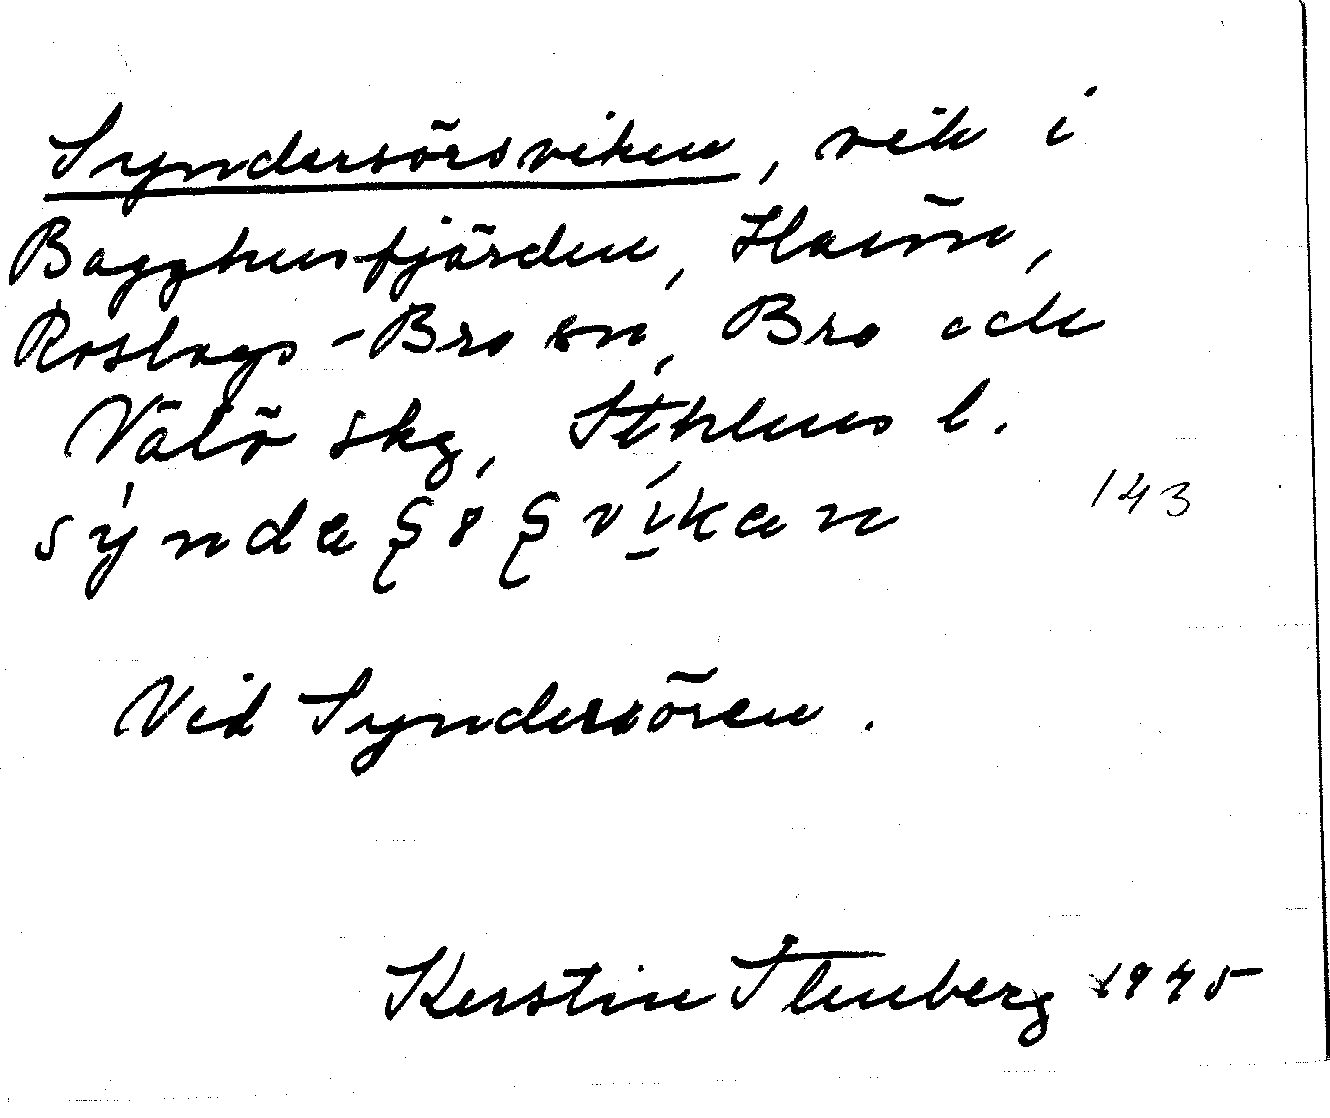 Syndersörsviken, vik i
Bagghusfjärden, Hamn,
Roslags-Bro sn, Bro och
Vätö skg, Sthlms l.
143
Vid Syndersören.
Kerstin Stenberg 1945